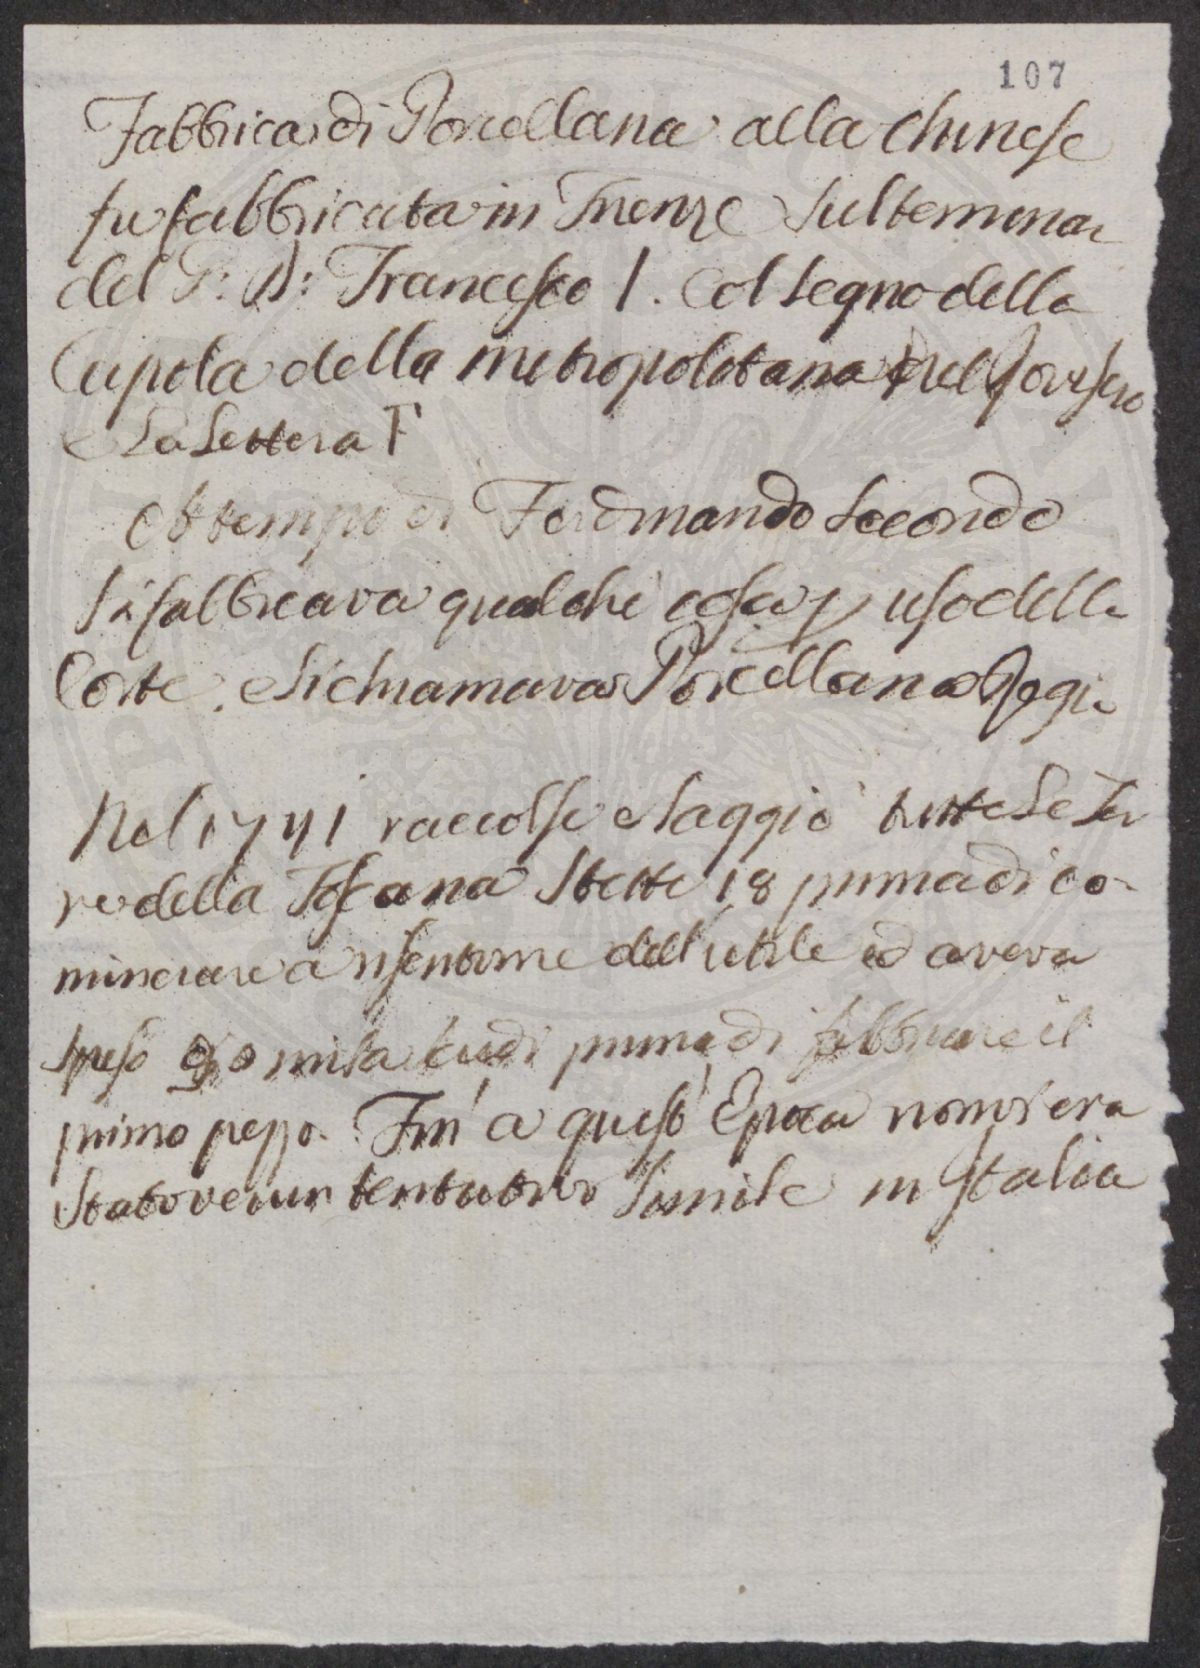 107
Fabbrica di Porcellana alla Chinese
fu fabbricata in Firenze sul terminar
del G: D: Francesco I. Col segno della
Cupola della metropolitana nel rovescio
e La Lettera F
Al tempo di Ferdinando Secondo
si fabbricava qualche cosa p uso della
Corte. e si chiamava Porcellana Regia
Nel 1741 raccolse e saggiò tutte Le Ter
re della Toscana stette 18 prima di co-
minciare a risentirne dell'utile ed aveva
speso mila scudi prima di fabbricare il
primo pezzo. Fin' a questo Epoca non vi era
stato verun tentativo simile in Italia